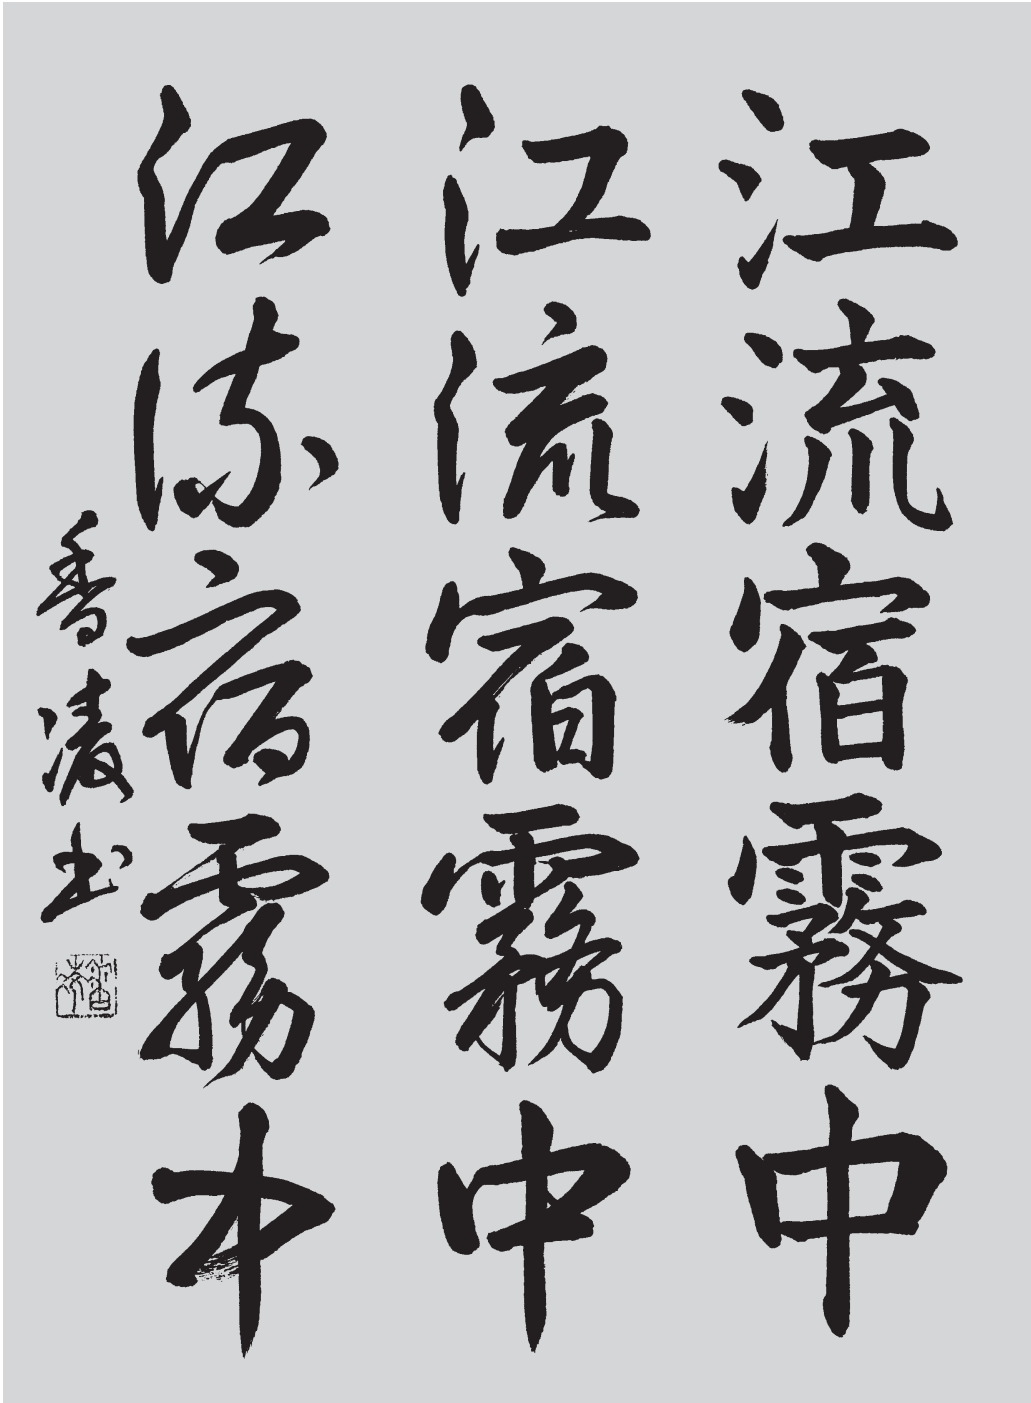 江流宿霧中
江流宿霧中
江流宿霧中
香凌书